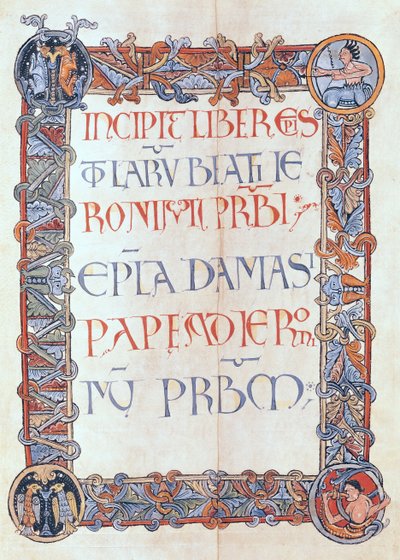 INCIPIT LIBER EPIS
TOLARŪ BEATI IE
RONIMI PR̄BI;
EPL̄A DAMASI
PAPĘ AD IERONI
MŪ PR̄BM;